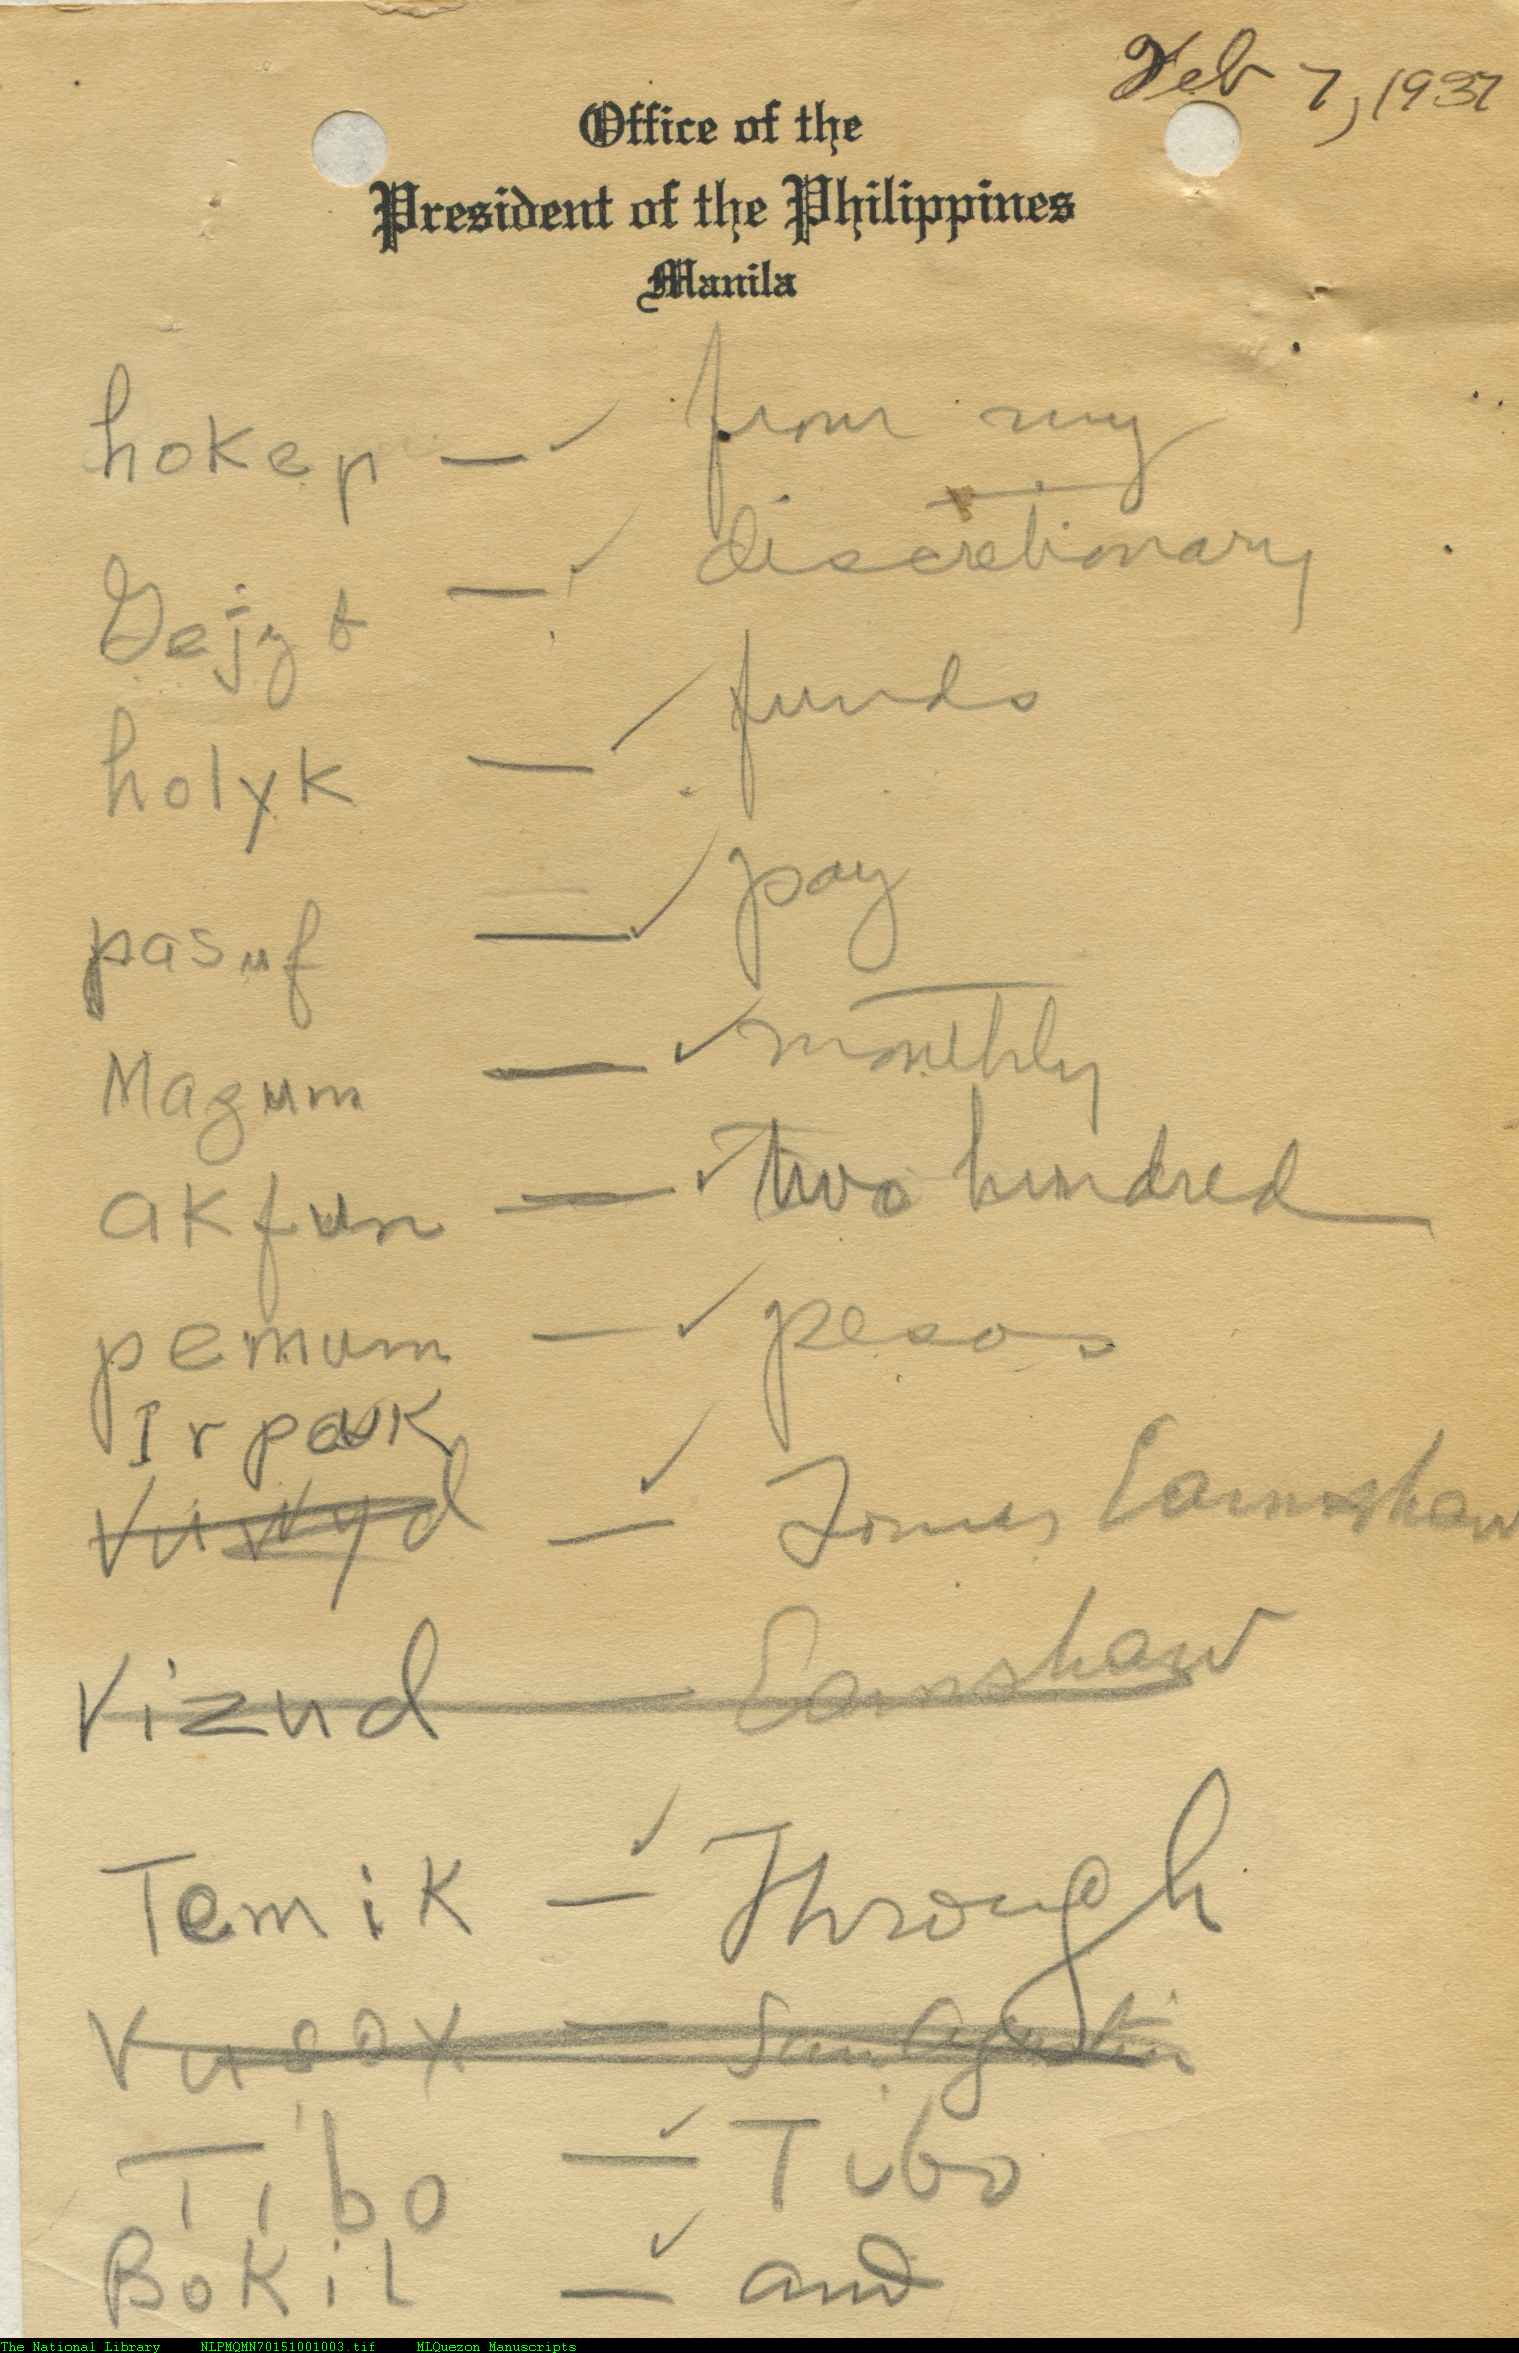 Feb 7, 1937
Office of the
President of the Philippines
Manila
hokep — ✓ from my
Gejyt — ✓ discretionary
holyk — ✓ funds
pasuf — ✓ pay
Magum — ✓ monthly
akfun — ✓ two hundred
pemum — ✓ pesos
Irpauk
— ✓ Tomas Earnshaw
Vizud — Earnshaw
Temik — ✓ Through
— San Agustin
Tibo — ✓ Tibo
Bokil — ✓ and
The National Library NLPMQMN70151001003.tif MLQuezon Manuscripts